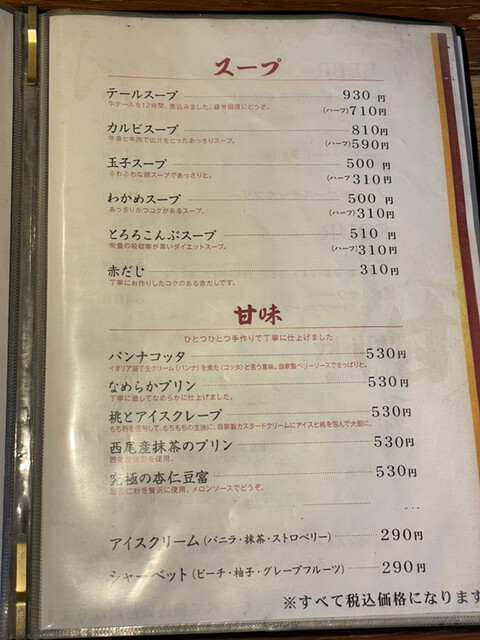 スープ
テールスープ 930円
牛テールを12時間、煮込みました。疲労回復にどうぞ。 (ハーフ)710円
カルビスープ 810円
牛骨と牛肉で出汁をとったあっさりスープ。 (ハーフ)590円
玉子スープ 500円
ふわふわな卵スープであっさりと。 (ハーフ)310円
わかめスープ 500円
あっさりかつコクがあるスープ。 (ハーフ)310円
とろろこんぶスープ 510円
栄養の吸収率が高いダイエットスープ。 (ハーフ)310円
赤だし 310円
丁寧にお作りしたコクのある赤だしです。
甘味
ひとつひとつ手作りで丁寧に仕上げました
パンナコッタ 530円
イタリア語で生クリーム(パンナ)を煮た(コッタ)と言う意味。自家製ベリーソースでさっぱりと。
なめらかプリン 530円
丁寧に漉してなめらかに仕上げました。
桃とアイスクレープ 530円
もち粉を使用して、もちもちの生地に、自家製カスタードクリームにアイスと桃を包んで大胆に。
西尾産抹茶のプリン 530円
西尾産抹茶を使用。
究極の杏仁豆富 530円
に粉を贅沢に使用。メロンソースでどうぞ。
円
アイスクリーム(バニラ・抹茶・ストロベリー) 290円
シャーベット(ピーチ・柚子・グレープフルーツ) 290円
※すべて税込価格になります